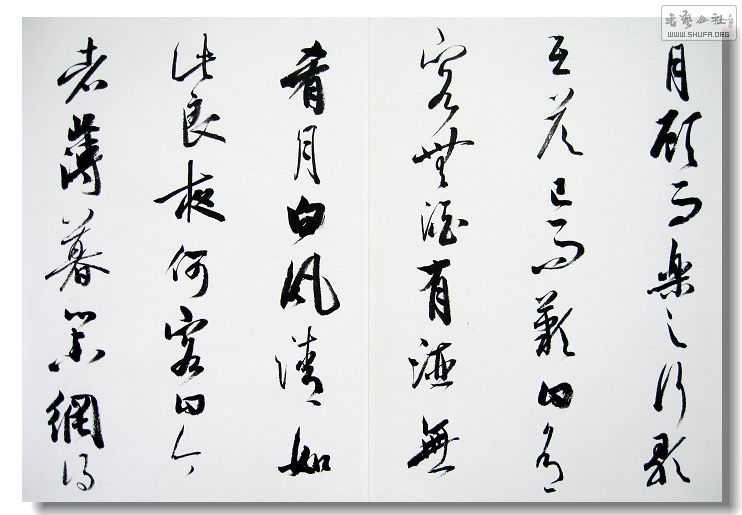 月顧而樂之行歌
互答已而歎曰有
客無酒有酒無
肴月白風清如
此良夜何客曰今
者薄暮舉網得
書藝公社
WWW.SHUFA.ORG